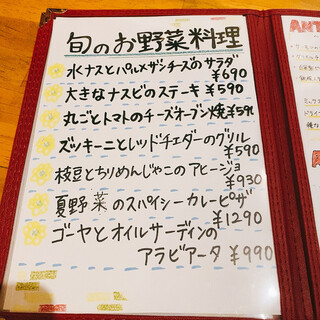 旬のお野菜料理
水ナスとパルメザンチーズのサラダ
¥690
大きなナスビのステーキ ¥590
丸ごとトマトのチーズオーブン焼¥590
ズッキーニとレッドチェダーのグリル
¥590
枝豆とちりめんじゃこのアヒージョ
¥930
夏野菜のスパイシーカレーピザ
¥1290
ゴーヤとオイルサーディンの
アラビアータ ¥990
ANT